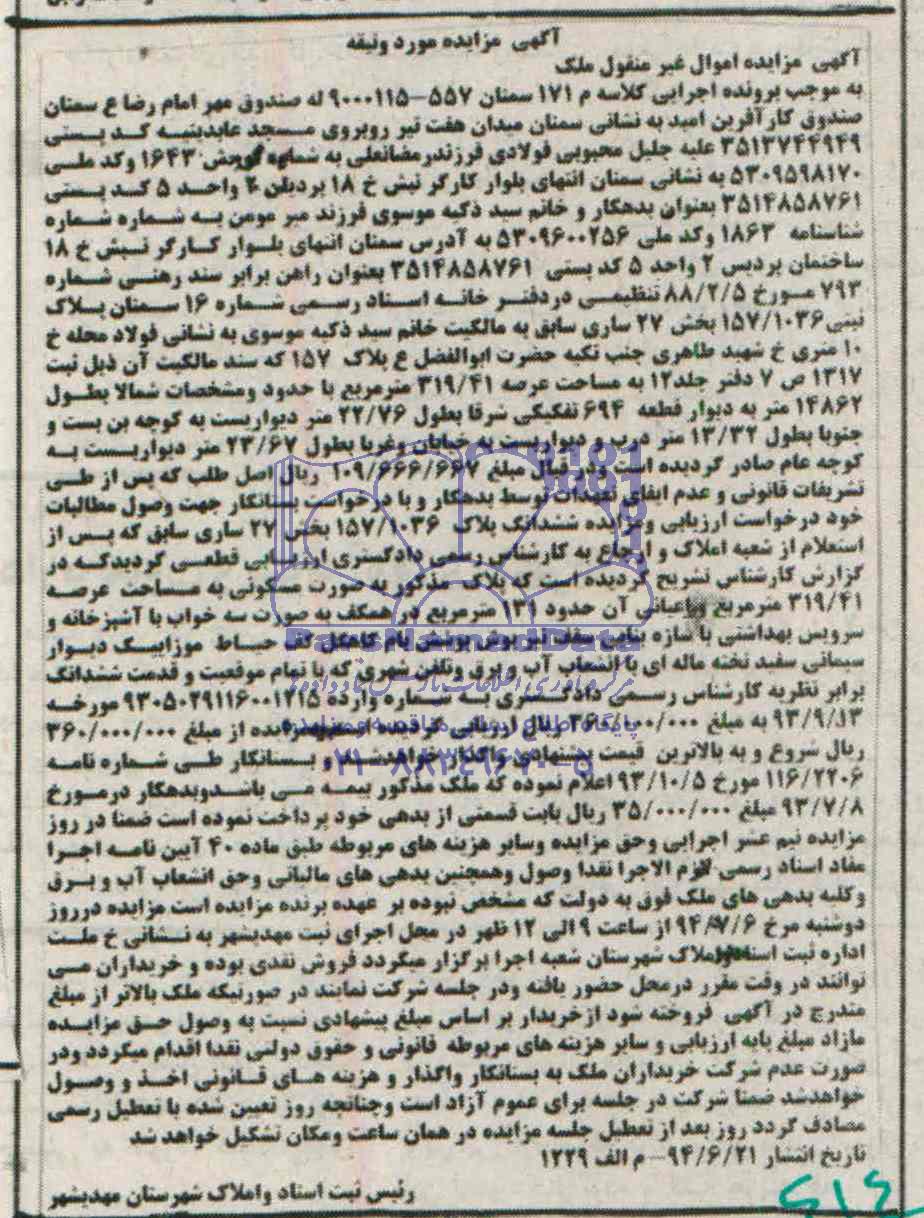 آگهی مزایده مورد وثیقه
آگهی مزایده اموال غیر منقول ملک
به موجب پرونده اجرایی کلاسه م ۱۷۱ سمنان ۵۵۷-۹۰۰۰۱۱۵ له صندوق مهر امام رضا ع سمنان
صندوق کارآفرین امید به نشانی سمنان میدان هفت تیر روبروی مسجد عابدینیه کد پستی
۳۵۱۳۷۴۴۹۴۹ علیه جلیل محبوبی فولادی فرزند رمضانعلی به شماره ۱۶۴۳ وکد ملی
۵۳۰۹۵۹۸۱۷۰ به نشانی سمنان انتهای بلوار کارگر نبش خ ۱۸ پردیس ۲ واحد ۵ کد پستی
۳۵۱۴۸۵۸۷۶۱ بعنوان بدهکار و خانم سید ذکیه موسوی فرزند میر مومن به شماره شماره
شناسنامه ۱۸۶۳ وکد ملی ۵۳۰۹۶۰۰۲۵۶ به آدرس سمنان انتهای بلوار کارگر نبش خ ۱۸
ساختمان پردیس ۲ واحد ۵ کد پستی ۳۵۱۴۸۵۸۷۶۱ بعنوان راهن برابر سند رهنی شماره
۷۹۳ مورخ ۸۸/۲/۵ تنظیمی دردفتر خانه اسناد رسمی شماره ۱۶ سمنان پلاک
ثبتی ۱۵۷/۱۰۳۶ بخش ۲۷ ساری سابق به مالکیت خانم سید ذکیه موسوی به نشانی فولاد محله خ
۱۰ متری خ شهید طاهری جنب تکیه حضرت ابوالفضل ع پلاک ۱۵۷ که سند مالکیت آن ذیل ثبت
۱۳۱۷ ص ۷ دفتر جلد۱۲ به مساحت عرصه ۳۱۹/۴۱ مترمربع با حدود ومشخصات شمالا بطول
۱۴۸۶۲ متر به دیوار قطعه ۶۹۴ تفکیکی شرقا بطول ۲۲/۷۶ متر دیواریست به کوچه بن بست و
جنوبا بطول ۱۳/۳۲ متر درب و دیواریست به خیابان وغربا بطول ۲۳/۶۷ متر دیواریست به
کوچه عام صادر گردیده است ودر قبال مبلغ ۱۰۹/۶۶۶/۶۶۷ ریال اصل طلب که پس از طی
تشریفات قانونی و عدم ایفای تعهدات توسط بدهکار و با درخواست بستانکار جهت وصول مطالبات
خود درخواست ارزیابی ومزایده ششدانگ پلاک ۱۵۷/۱۰۳۶ بخش ۲۷ ساری سابق که پس از
استعلام از شعبه املاک و ارجاع به کارشناس رسمی دادگستری ارزیابی قطعی گردیدکه در
گزارش کارشناس تشریح گردیده است که پلاک مذکور به صورت مسکونی به مساحت عرصه
۳۱۹/۴۱ مترمربع و اعیانی آن حدود ۱۳۱ مترمربع در همکف به صورت سه خواب با آشپزخانه و
سرویس بهداشتی با سازه بنایی سقف تیر پوش پوشش بام کاهگل کف حیاط موزاییک دیوار
سیمانی سفید تخته ماله ای با انشعاب آب و برق وتلفن شهری که با تمام موقعیت و قدمت ششدانگ
برابر نظریه کارشناس رسمی دادگستری به شماره وارده ۹۳۰۵۰۲۹۱۱۶۰۰۱۲۱۵ مورخه
۹۳/۹/۱۳ به مبلغ ۳۶۰/۰۰۰/۰۰۰ ریال ارزیابی گردیده است مزایده از مبلغ ۳۶۰/۰۰۰/۰۰۰
ریال شروع و به بالاترین قیمت پیشنهادی واگذار خواهدشد و بستانکار طی شماره نامه
۱۱۶/۲۲۰۶ مورخ ۹۳/۱۰/۵ اعلام نموده که ملک مذکور بیمه می باشدوبدهکار درمورخ
۹۳/۷/۸ مبلغ ۳۵/۰۰۰/۰۰۰ ریال بابت قسمتی از بدهی خود پرداخت نموده است ضمنا در روز
مزایده نیم عشر اجرایی وحق مزایده وسایر هزینه های مربوطه طبق ماده ۴۰ آیین نامه اجرا
مفاد اسناد رسمی لازم الاجرا نقدا وصول وهمچنین بدهی های مالیاتی وحق انشعاب آب و برق
وکلیه بدهی های ملک فوق به دولت که مشخص نبوده بر عهده برنده مزایده است مزایده درروز
دوشنبه مرخ ۹۴/۷/۶ از ساعت ۹ الی ۱۲ ظهر در محل اجرای ثبت مهدیشهر به نشانی خ ملت
اداره ثبت اسناد واملاک شهرستان شعبه اجرا برگزار میگردد فروش نقدی بوده و خریداران می
توانند در وقت مقرر درمحل حضور یافته ودر جلسه شرکت نمایند در صورتیکه ملک بالاتر از مبلغ
مندرج در آگهی فروخته شود ازخریدار بر اساس مبلغ پیشنهادی نسبت به وصول حق مزایده
مازاد مبلغ پایه ارزیابی و سایر هزینه های مربوطه قانونی و حقوق دولتی نقدا اقدام میگردد ودر
صورت عدم شرکت خریداران ملک به بستانکار واگذار و هزینه های قانونی اخذ و وصول
خواهدشد ضمنا شرکت در جلسه برای عموم آزاد است وچنانچه روز تعیین شده با تعطیل رسمی
مصادف گردد روز بعد از تعطیل جلسه مزایده در همان ساعت ومکان تشکیل خواهد شد
تاریخ انتشار ۹۴/۶/۲۱- م الف ۱۲۲۹
رئیس ثبت اسناد واملاک شهرستان مهدیشهر